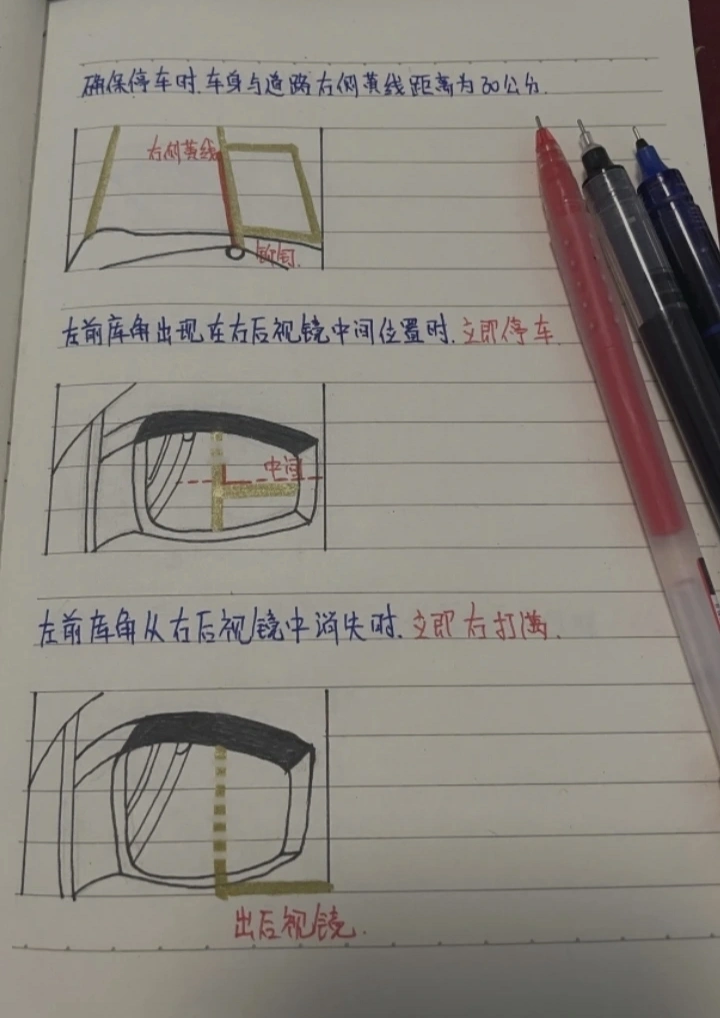 确保停车时.车身与道路右侧黄线距离为30公分.
右侧黄线
左前库角出现在右后视镜中间位置时.立即停车.
中间
左前库角从右后视镜中消失时.立即右打满.
出后视镜.